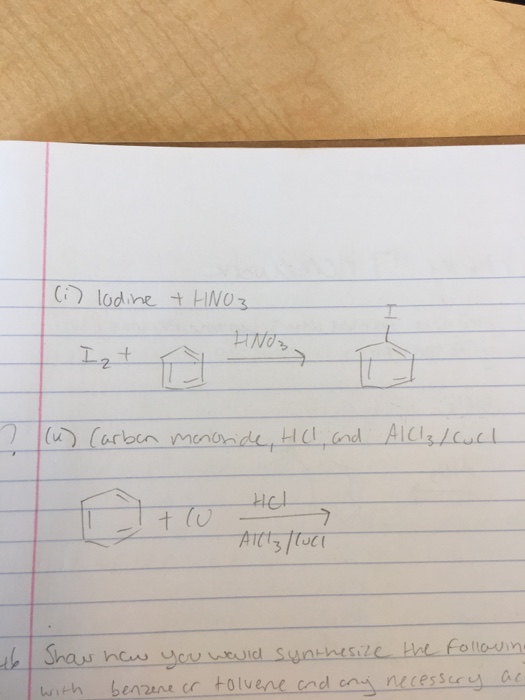 (i) Iodine + HNO3
I
I2 + HNO3
? (u) Carbon monoxide, HCl, and AlCl3/CuCl
+ CO HCl
AlCl3/CuCl
46 Show how you would synthesize the following
with benzene or toluene and any necessary ac